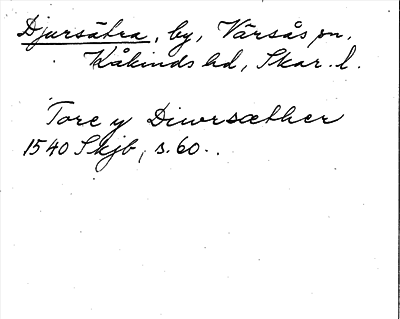 Djursätra, by, Värsås sn.
Kåkinds hd, Skar. l.
Tore y Diwrsæther
1540 Skjb, s. 60.